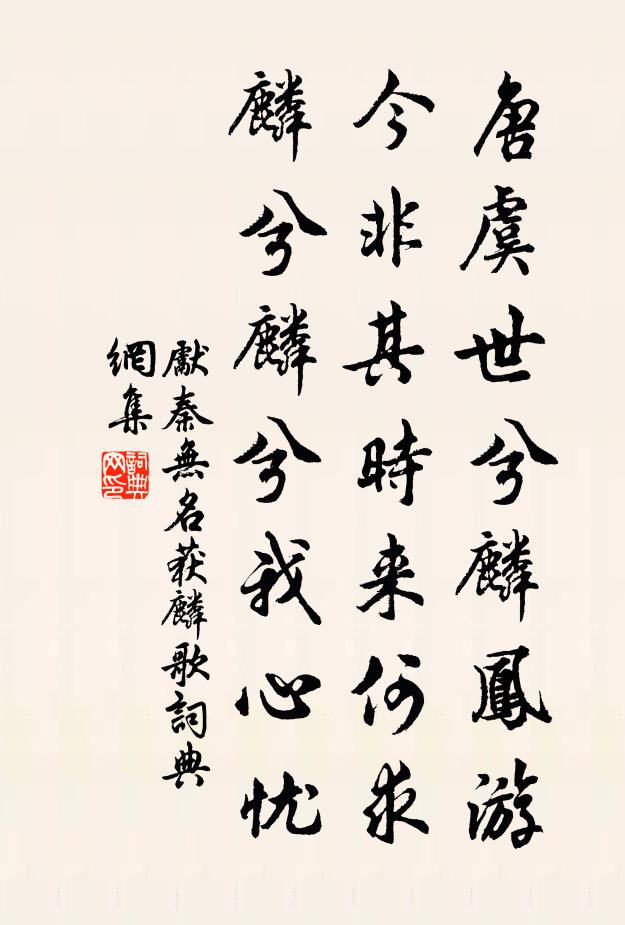 唐虞世兮麟鳳游
今非其時来何求
麟兮麟兮我心忧
獻秦無名获麟歌詞典
網集
詞典网印